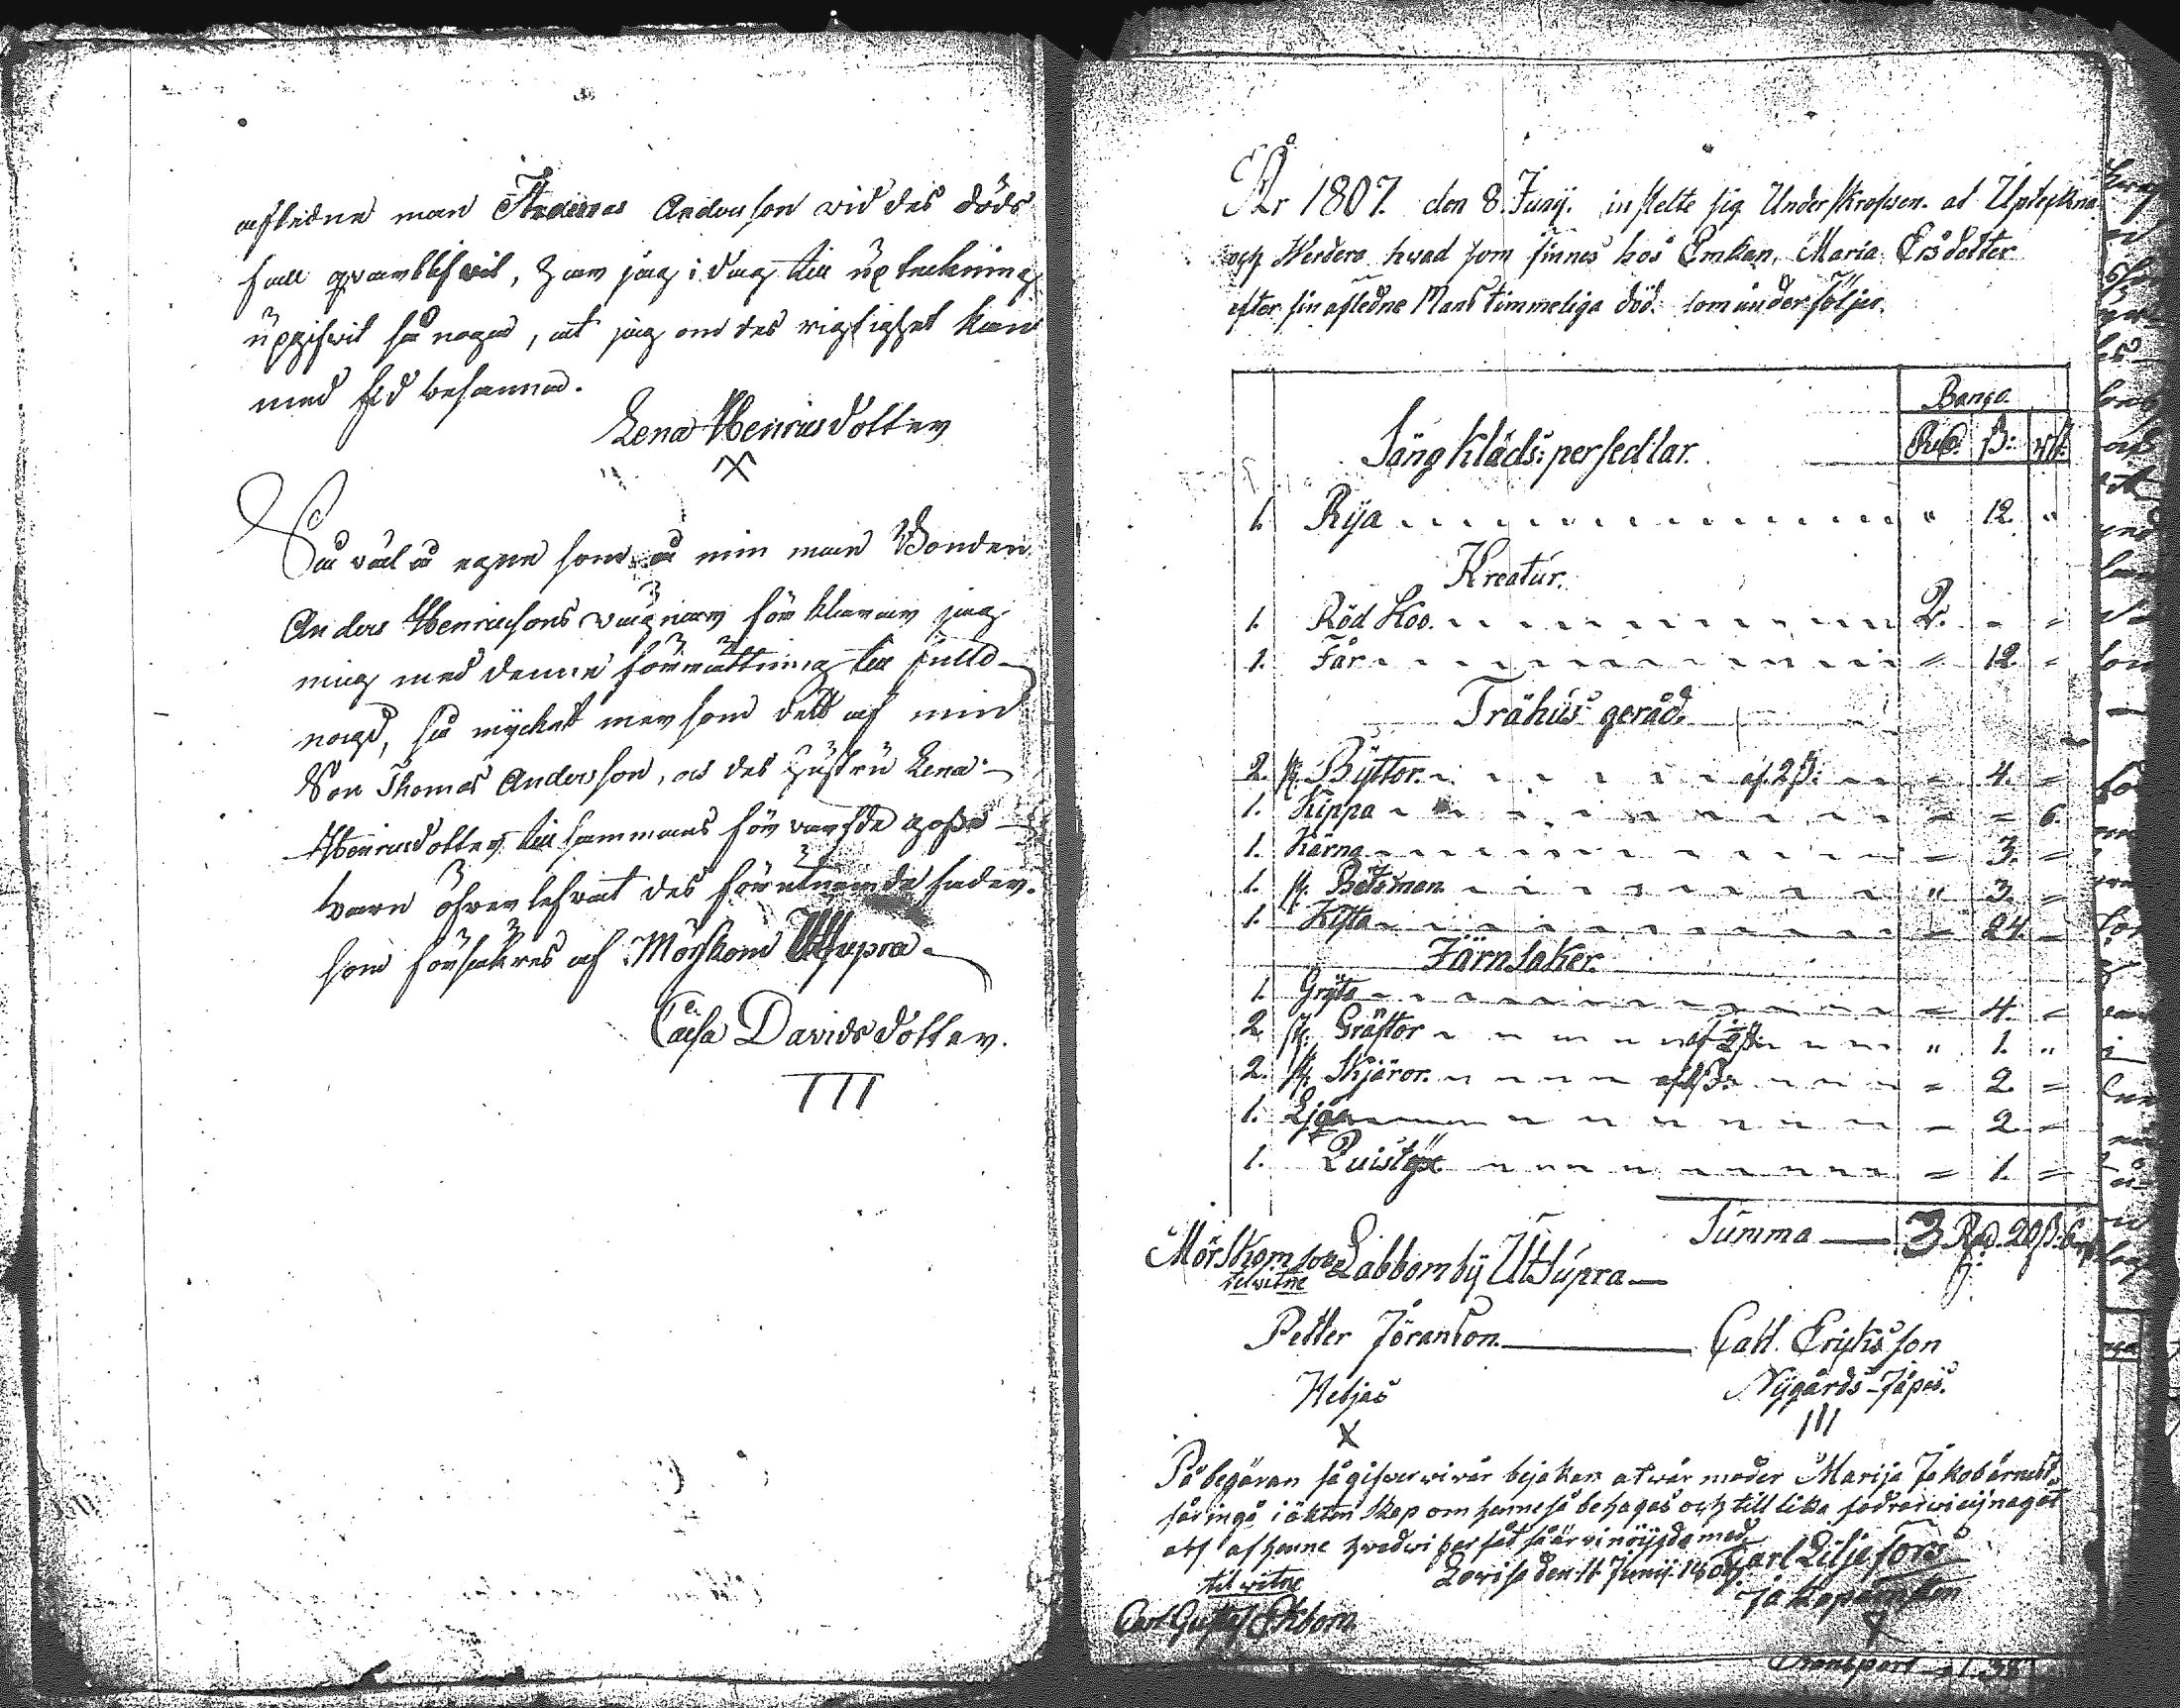 afledne man Thomas Andersson vid des döds
fall qvarblifvit, har jag i dag till upteckning
upgifvit så noga, at jag om des rigtighet kan
med Ed besanna.
Lena Henricsdotter
X
Så väl å egne som å min man Bonden
Anders Henricsons vägnar förklarar jag
mig med denne förrättning till fulld
nögd, så mycket mer som det af min
Son Thomas Andersson, och des hustru Lena
Henricsdotter tillsammans förvärfde godset
varn öfverlefvat des förutnemde fader.
som försäkras af Mörskom Ut Supra
Caisa Davidsdotter.
III
År 1807. den 8 Junij. instelte sig Underskrefven. at Upteykna
och Werdera hwad som finnes hos Enkan, Maria Ersdotter
efter sin afledne Mans timmeliga död. som under följer.
Banco.
Sängkläds: persedlar. Rd. ß: rst.
1. Rija " 12. "
Kreatur.
1. Röd Koo. 2. - -
1. Får - 12. -
Trähus geråd.
2. st. Byttor. af. 2 ß: - 4. -
1. Kippa - - 6.
1. Kärna - 3. -
1. st. Betsman " 3. -
1. Kista - 24. -
Järnsaker.
1. Gryta - 4. -
2. st. Gräftor af ½ ß: " 1. "
2. st. Skjäror. af 1 ß: - 2. -
1. Lja - 2. -
1. Quistyx - 1. -
Summa 3 Rd. 20 ß: 6 rst
Mörskom sorn Labbomby Ut Supra
til witne
Petter Jöranson Carl Eriksson
Heljas Nygårds-Jåpas.
X III
På begäran så gifver wi vår bejakan at vår moder Marija Jakobs enka
får ingå i äktenskap om henne så behagas och till lika fodrar wi ej nagot
arf af henne hvad wi har fåt så är vi nöijgda med
Lovisa den 11 Junij 1807 Carl Liljefors
til witne
Carl Gustaf Ekbom
X
Transport